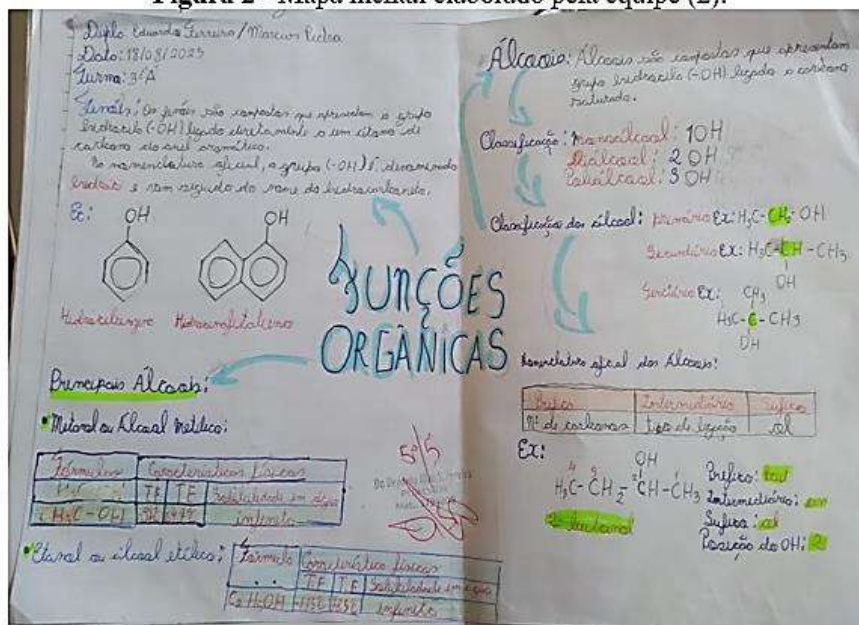 Figura 2 - Mapa mental elaborado pela equipe (2).
Dupla: Eduarda Ferreira / Marcus
Data: 18/08/2023
Turma: 3ºA
Fenóis: Os fenóis são compostos que apresentam o grupo
hidroxila (-OH) ligado diretamente a um átomo de
carbono do anel aromático.
Na nomenclatura oficial, o grupo (-OH) é denominado
hidróxi e vem seguido do nome do hidrocarboneto.
Ex:
OH
OH
Hidroxibenzeno
Hidroxinaftaleno
FUNÇÕES
ORGÂNICAS
Principais Álcoois:
Metanol ou Álcool metílico:
Fórmula
Características físicas
T.F
T.E
Solubilidade em água
H3C-OH
infinita
Etanol ou álcool etílico:
Fórmula
Característica físicas
T.F
T.E
Solubilidade em água
C2H5OH
infinita
Álcoois: Álcoois são compostos que apresentam
grupo hidroxila (-OH) ligado a carbono
saturado.
Classificação: Monoálcool: 1OH
Diálcool: 2 OH
Poliálcool: 3 OH
Classificação dos álcool: primário Ex: H3C-CH2-OH
Secundário Ex: H3C-CH-CH3
OH
Terciário Ex:
CH3
H3C-C-CH3
OH
Nomenclatura oficial dos Álcoois:
Prefixo
Intermediário
Sufixo
Nº de carbonos
tipo de ligação
ol
Ex:
OH
4
3
2
1
H3C-CH2-CH-CH3
2-butanol
Prefixo: but
Intermediário: an
Sufixo: ol
Posição do OH: 2